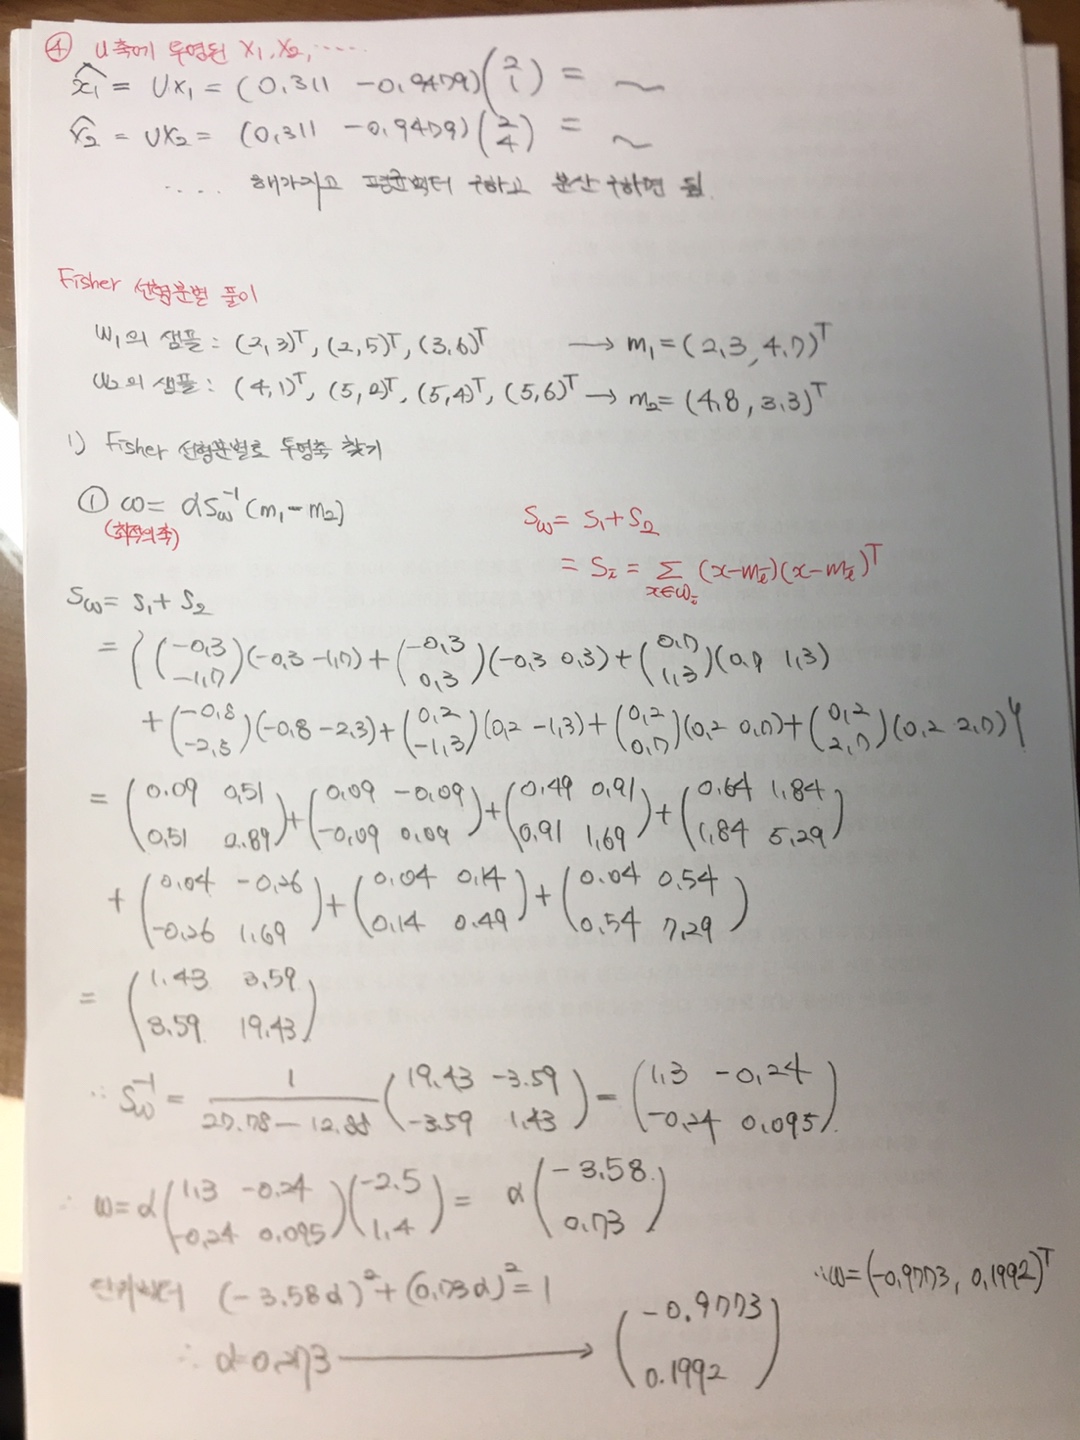 ④ U축에 투영된 X₁, X₂, .....
x̂₁ = UX₁ = (0.311 -0.9479)(2 1) = ~
x̂₂ = UX₂ = (0.311 -0.9479)(2 4) = ~
.... 해가지고 평균벡터 구하고 분산 구하면 됨.
Fisher 선형분별 풀이
W₁의 샘플 : (2,3)ᵀ, (2,5)ᵀ, (3,6)ᵀ → m₁ = (2.3, 4.7)ᵀ
W₂의 샘플 : (4,1)ᵀ, (5,2)ᵀ, (5,4)ᵀ, (5,6)ᵀ → m₂ = (4.8, 3.3)ᵀ
1) Fisher 선형분별로 투영축 찾기
① ω = αSω⁻¹(m₁-m₂)
(최적의 축)
Sω = S₁+S₂
= Sᵢ = Σ (x-mᵢ)(x-mᵢ)ᵀ
x∈ωᵢ
Sω = S₁+S₂
= {(-0.3 -1.7)(-0.3 -1.7) + (-0.3 0.3)(-0.3 0.3) + (0.7 1.3)(0.7 1.3)
+ (-0.8 -2.3)(-0.8 -2.3) + (0.2 -1.3)(0.2 -1.3) + (0.2 0.7)(0.2 0.7) + (0.2 2.7)(0.2 2.7)}
= (0.09 0.51 0.51 2.89) + (0.09 -0.09 -0.09 0.09) + (0.49 0.91 0.91 1.69) + (0.64 1.84 1.84 5.29)
+ (0.04 -0.26 -0.26 1.69) + (0.04 0.14 0.14 0.49) + (0.04 0.54 0.54 7.29)
= (1.43 3.59 3.59 19.43)
∴ Sω⁻¹ = 1 / 27.78-12.88 (19.43 -3.59 -3.59 1.43) = (1.3 -0.24 -0.24 0.095)
∴ ω = α(1.3 -0.24 -0.24 0.095)(-2.5 1.4) = α(-3.58 0.73)
단위벡터 (-3.58α)² + (0.73α)² = 1
∴ω = (-0.9773, 0.1992)ᵀ
∴ α=0.273 → (-0.9773 0.1992)